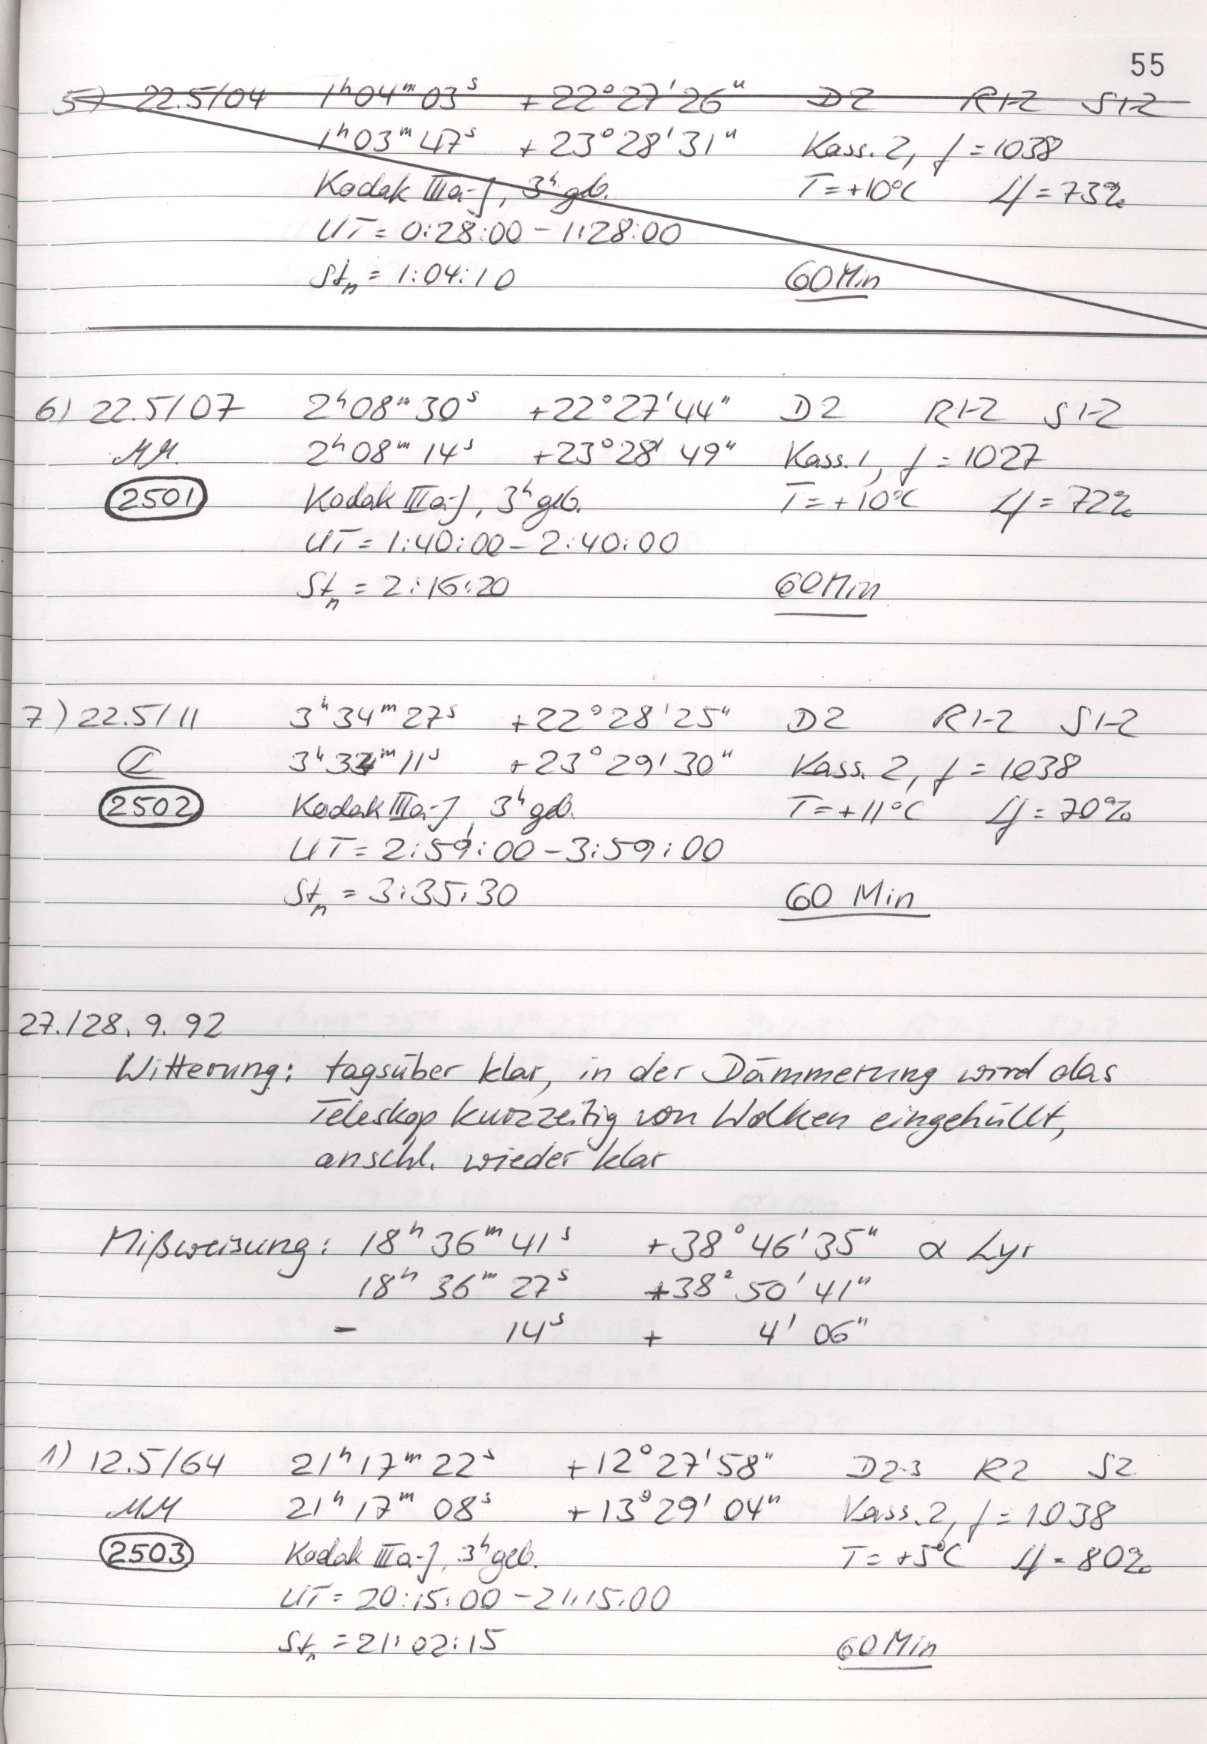 55
5) 22.5/04 1ʰ04ᵐ03ˢ +22°27'26" D2 R1-2 S1-2
1ʰ03ᵐ47ˢ +23°28'31" Kass. 2, f = 1038
Kodak IIIa-J, 3ʰ geb. T = +10°C = 73%
UT = 0:28:00 - 1:28:00
Stₙ = 1:04:10 60 Min
6) 22.5/07 2ʰ08ᵐ30ˢ +22°27'44" D2 R1-2 S1-2
MM 2ʰ08ᵐ14ˢ +23°28'49" Kass. 1, f = 1027
2501 Kodak IIIa-J, 3ʰ geb. T = +10°C = 72%
UT = 1:40:00 - 2:40:00
Stₙ = 2:16:20 60 Min
7) 22.5/11 3ʰ34ᵐ27ˢ +22°28'25" D2 R1-2 S1-2
3ʰ34ᵐ11ˢ +23°29'30" Kass. 2, f = 1038
2502 Kodak IIIa-J, 3ʰ geb. T = +11°C = 70%
UT = 2:59:00 - 3:59:00
Stₙ = 3:35:30 60 Min
27./28. 9. 92
Witterung: tagsüber klar, in der Dämmerung wird das
Teleskop kurzzeitig von Wolken eingehüllt,
anschl. wieder klar
Mißweisung: 18ʰ36ᵐ41ˢ +38°46'35" α Lyr
18ʰ36ᵐ27ˢ +38°50'41"
- 14ˢ + 4'06"
1) 12.5/64 21ʰ17ᵐ22ˢ +12°27'58" D2-3 R2 S2
MM 21ʰ17ᵐ08ˢ +13°29'04" Kass. 2, f = 1038
2503 Kodak IIIa-J, 3ʰ geb. T = +5°C = 80%
UT = 20:15:00 - 21:15:00
Stₙ = 21:02:15 60 Min